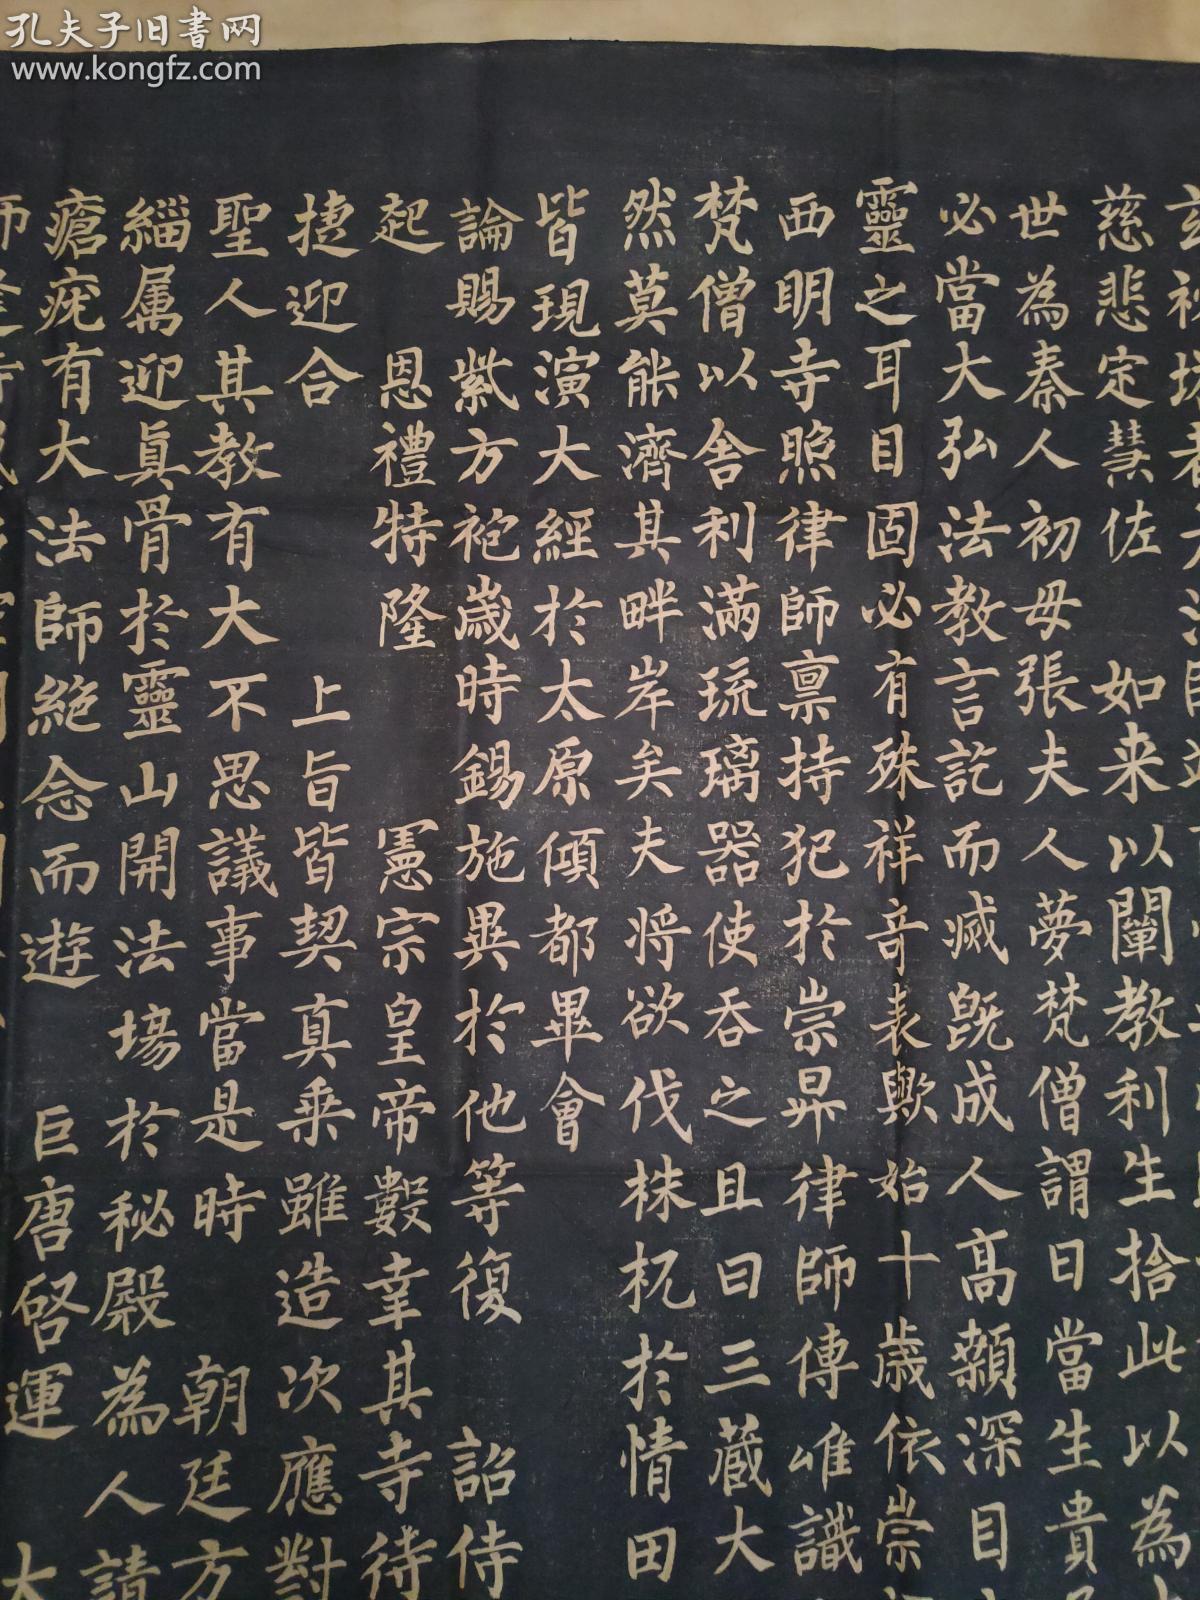 孔夫子旧書网
www.kongfz.com
慈悲定慧佐　如来以闡教利生捨此以為
世為秦人初母張夫人夢梵僧謂曰當生貴
必當大弘法教言訖而滅既成人高顙深目
靈之耳目固必有殊祥奇表歟始十歲依崇
西明寺照律師禀持犯於崇昇律師傳唯識
梵僧以舍利滿琉璃器使吞之且曰三藏大
然莫能濟其畔岸矣夫將欲伐株杌於情田
皆現演大經於太原傾都畢會
論賜紫方袍歲時錫施異於他等復　詔侍
起　恩禮特隆　憲宗皇帝數幸其寺待
捷迎合　上旨皆契真乘雖造次應對
聖人其教有大不思議事當是時　朝廷方
緇属迎真骨於靈山開法場於秘殿為人請
瘡疣有大法師絶念而遊　巨唐啓運　大